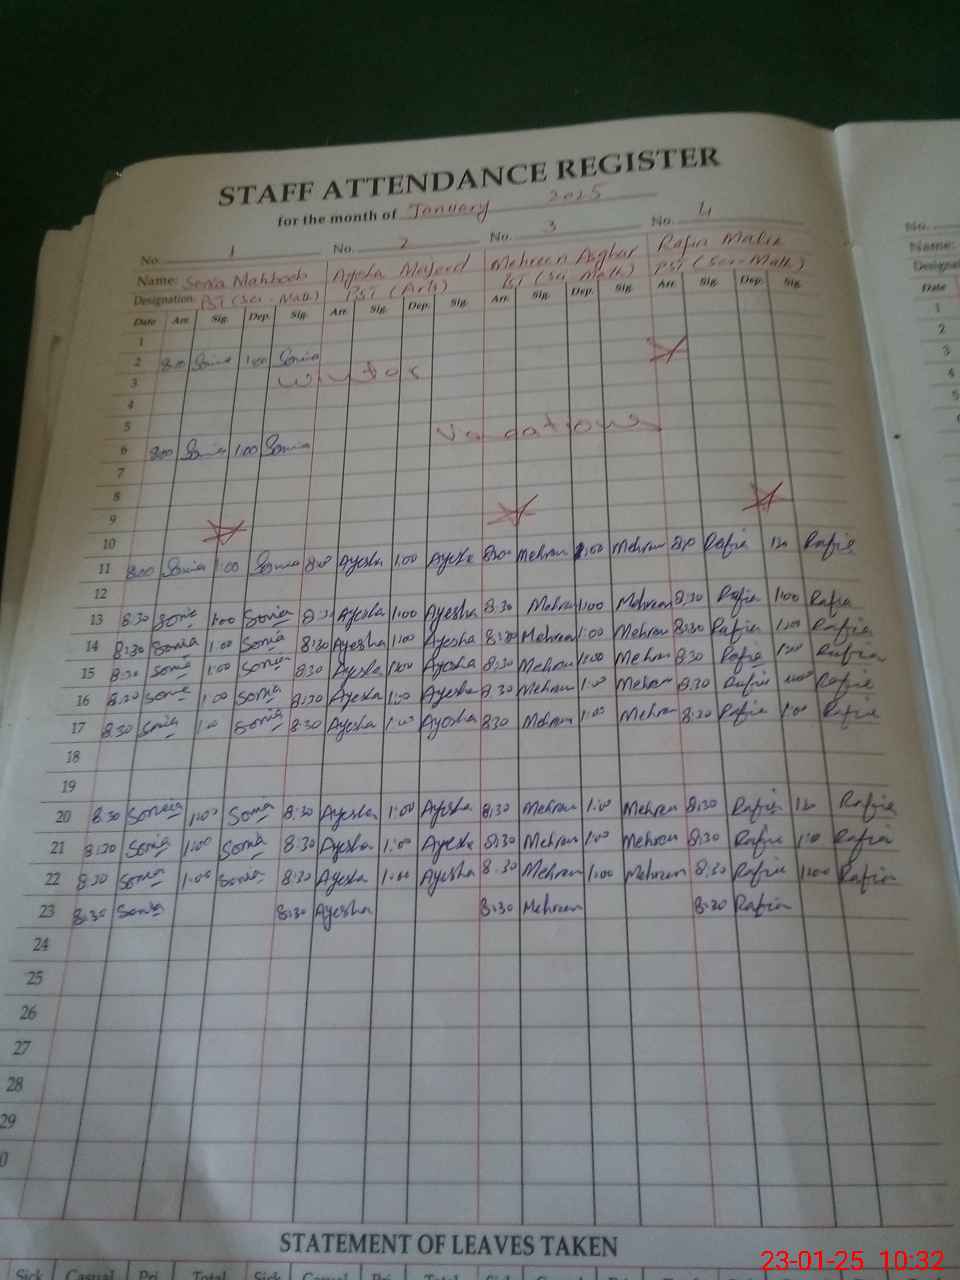 STAFF ATTENDANCE REGISTER
for the month of January 2025
No. 1 No. 2 No. 3 No. 4
No.
Name: Sonia Mahboob Ayesha Mehreen Asghar Rafia Malik
Name:
Designation: PST (Sci-Math) PST (Arts) PST (Sci-Math) PST (Sci-Math)
Date Arr. Sig. Dep. Sig. Arr. Sig. Dep. Sig. Arr. Sig. Dep. Sig. Arr. Sig. Dep. Sig.
Date
1
1
2 8:00 Sonia 1:00 Sonia
2
3 winter
3
4
4
5 Vacations
5
6 8:00 Sonia 1:00 Sonia
6
7
8
9
10
11 8:00 Sonia 1:00 Sonia 8:00 Ayesha 1:00 Ayesha 8:00 Mehreen 1:00 Mehreen 8:00 Rafia Rafia
12
13 8:30 Sonia 1:00 Sonia 8:30 Ayesha 1:00 Ayesha 8:30 Mehreen 1:00 Mehreen 8:30 Rafia 1:00 Rafia
14 8:30 Sonia 1:00 Sonia 8:30 Ayesha 1:00 Ayesha 8:30 Mehreen 1:00 Mehreen 8:30 Rafia 1:00 Rafia
15 8:30 Sonia 1:00 Sonia 8:30 Ayesha 1:00 Ayesha 8:30 Mehreen 1:00 Mehreen 8:30 Rafia 1:00 Rafia
16 8:30 Sonia 1:00 Sonia 8:30 Ayesha 1:00 Ayesha 8:30 Mehreen 1:00 Mehreen 8:30 Rafia 1:00 Rafia
17 8:30 Sonia 1:00 Sonia 8:30 Ayesha 1:00 Ayesha 8:30 Mehreen 1:00 Mehreen 8:30 Rafia 1:00 Rafia
18
19
20 8:30 Sonia 1:00 Sonia 8:30 Ayesha 1:00 Ayesha 8:30 Mehreen 1:00 Mehreen 8:30 Rafia 1:00 Rafia
21 8:30 Sonia 1:00 Sonia 8:30 Ayesha 1:00 Ayesha 8:30 Mehreen 1:00 Mehreen 8:30 Rafia 1:00 Rafia
22 8:30 Sonia 1:00 Sonia 8:30 Ayesha 1:00 Ayesha 8:30 Mehreen 1:00 Mehreen 8:30 Rafia 1:00 Rafia
23 8:30 Sonia 8:30 Ayesha 8:30 Mehreen 8:30 Rafia
24
25
26
27
28
29
0
STATEMENT OF LEAVES TAKEN
Sick Casual Pri. Total Sick Casual Pri. Total Sick
23-01-25 10:32